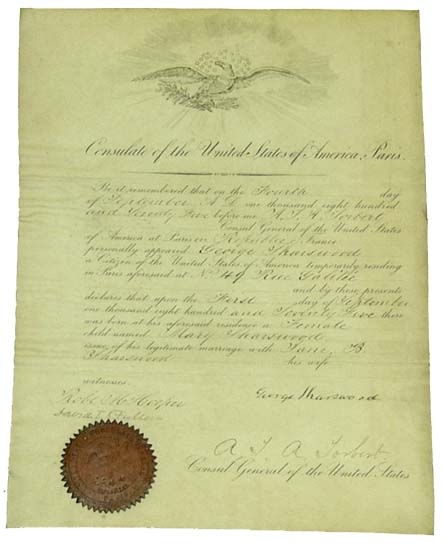 Consulate of the United States of America, Paris.
Be it remembered that on the Fourth day
of September A.D. one thousand eight hundred
and Seventy Five before me A. T. A. Torbert
Consul General of the United States
of America at Paris in Republic France
personally appeared George Sharswood
a Citizen of the United States of America temporarily residing
in Paris aforesaid at No. 49 Rue Galilée
and by these presents
declares that upon the First day of September
one thousand eight hundred and Seventy Five there
was born at his aforesaid residence a Female
child named Mary Sharswood
issue of his legitimate marriage with Jane B
Sharswood his wife
witnesses
Robt M Hooper
David T. Fuller
George Sharswood
A. T. A. Torbert
Consul General of the United States